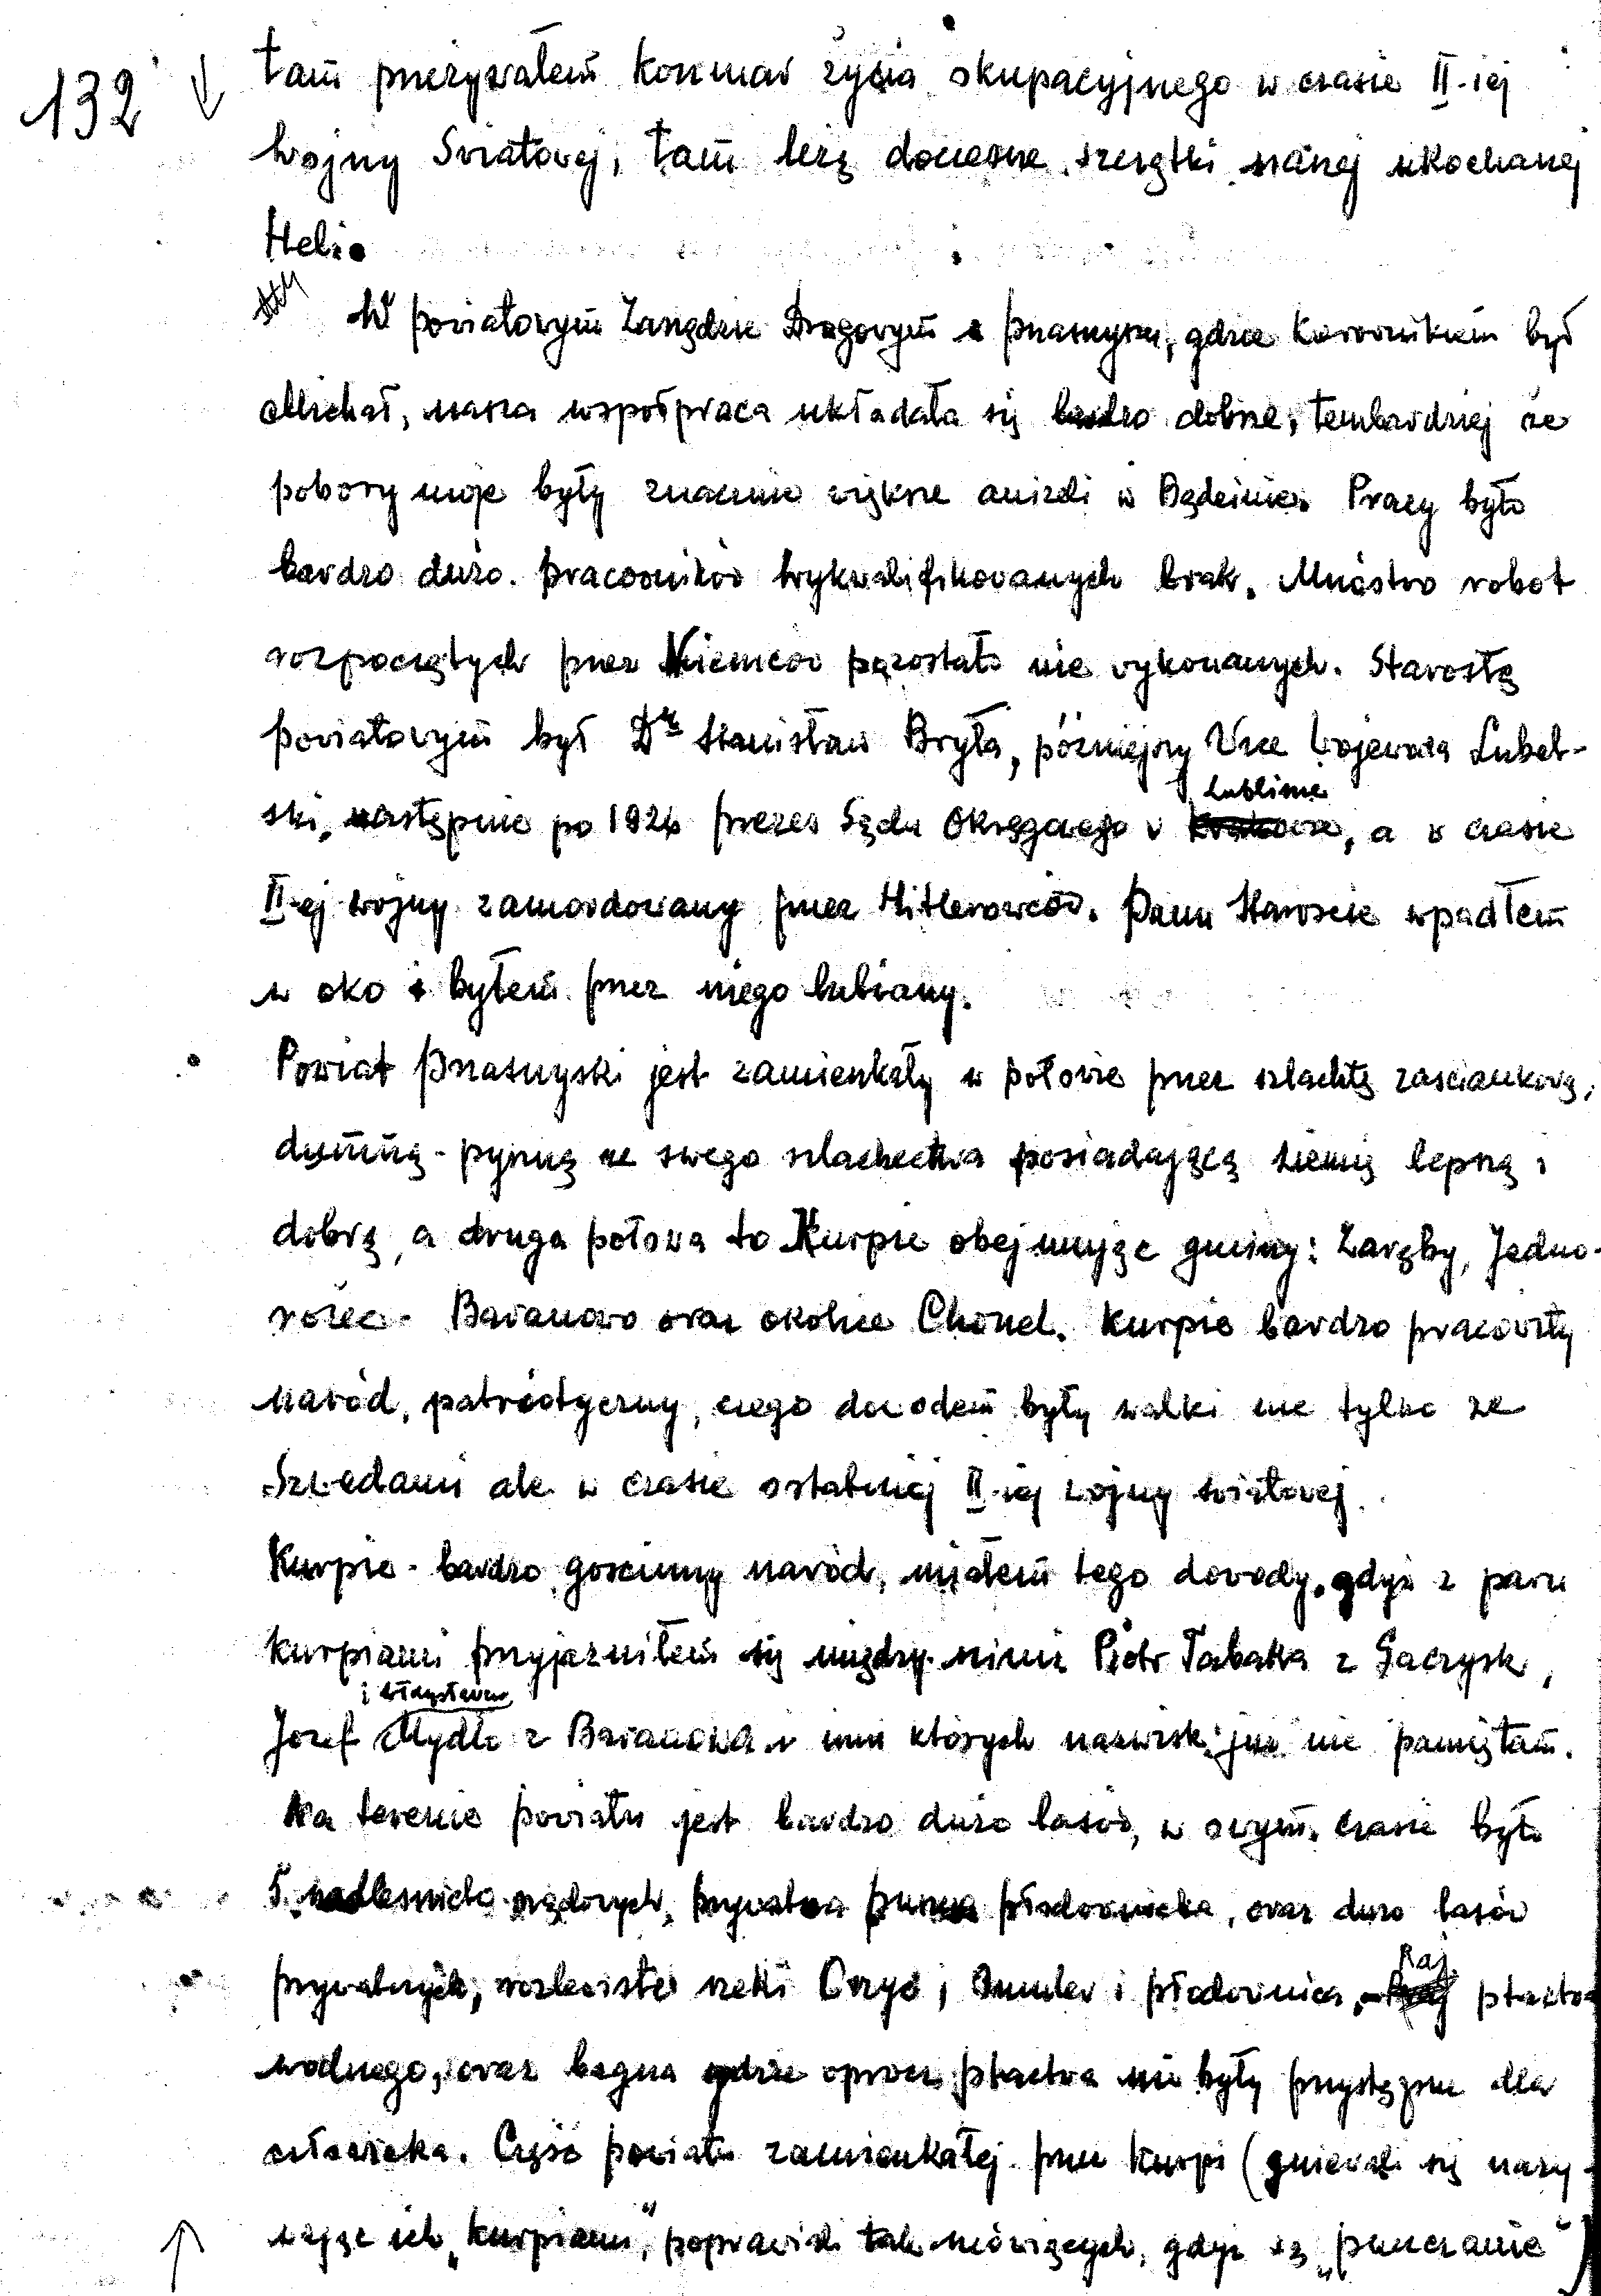 132 ↓ tam przeżywałem koszmar życia okupacyjnego w czasie II-iej
Wojny Światowej, tam leżą doczesne szczątki mojej ukochanej
Heli.
W powiatowym Zarządzie Drogowym w Przasnyszu, gdzie Kierownikiem był
Michał, nasza współpraca układała się bardzo dobrze, tembardziej że
pobory moje były znacznie większe aniżeli w Będzinie. Pracy było
bardzo dużo. pracowników wykwalifikowanych brak. Mnóstwo robot
rozpoczętych przez Niemców pozostało nie wykonanych. Starostą
powiatowym był Dr Stanisław Bryła, późniejszy Vice Wojewoda Lubel-
ski, następnie po 1926 prezes Sądu Okręgowego w Lublinie, a w czasie
II-ej wojny zamordowany przez Hitlerowców. Panu Staroście wpadłem
w oko i byłem przez niego lubiany.
Powiat Przasnyski jest zamieszkały w połowie przez szlachtę zaściankową,
dumną - pyszną ze swego szlachectwa posiadającą ziemię lepszą i
dobrą, a druga połowa to Kurpie obejmując gminy: Zaręby, Jedno-
rożec - Baranowo oraz okolice Chorzel. Kurpie bardzo pracowity
naród, patriotyczny, czego dowodem były walki nie tylko ze
Szwedami ale w czasie ostatniej II-iej wojny światowej.
Kurpie - bardzo gościnny naród, miałem tego dowody, gdyż z paru
kurpiami przyjaźniłem się między nimi Piotr Tabaka z Gaczysk,
i Władysław
Józef Mydło z Baranowa i inni których nazwisk już nie pamiętam.
Na terenie powiatu jest bardzo dużo lasów, w owym czasie było
5 nadleśnictw rządowych, prywatna puszcza płodownicka, oraz dużo lasów
prywatnych, rozlewiste rzeki Orzyc, Omulew i płodownica, - Raj ptactwa
wodnego, oraz bagna gdzie oprócz ptactwa nie były przystępne dla
człowieka. Część powiatu zamieszkałej przez Kurpi (gniewali się nazy-
wając ich „kurpiami", poprawiali tak mówiących, gdyż są „puszczanie")
↑